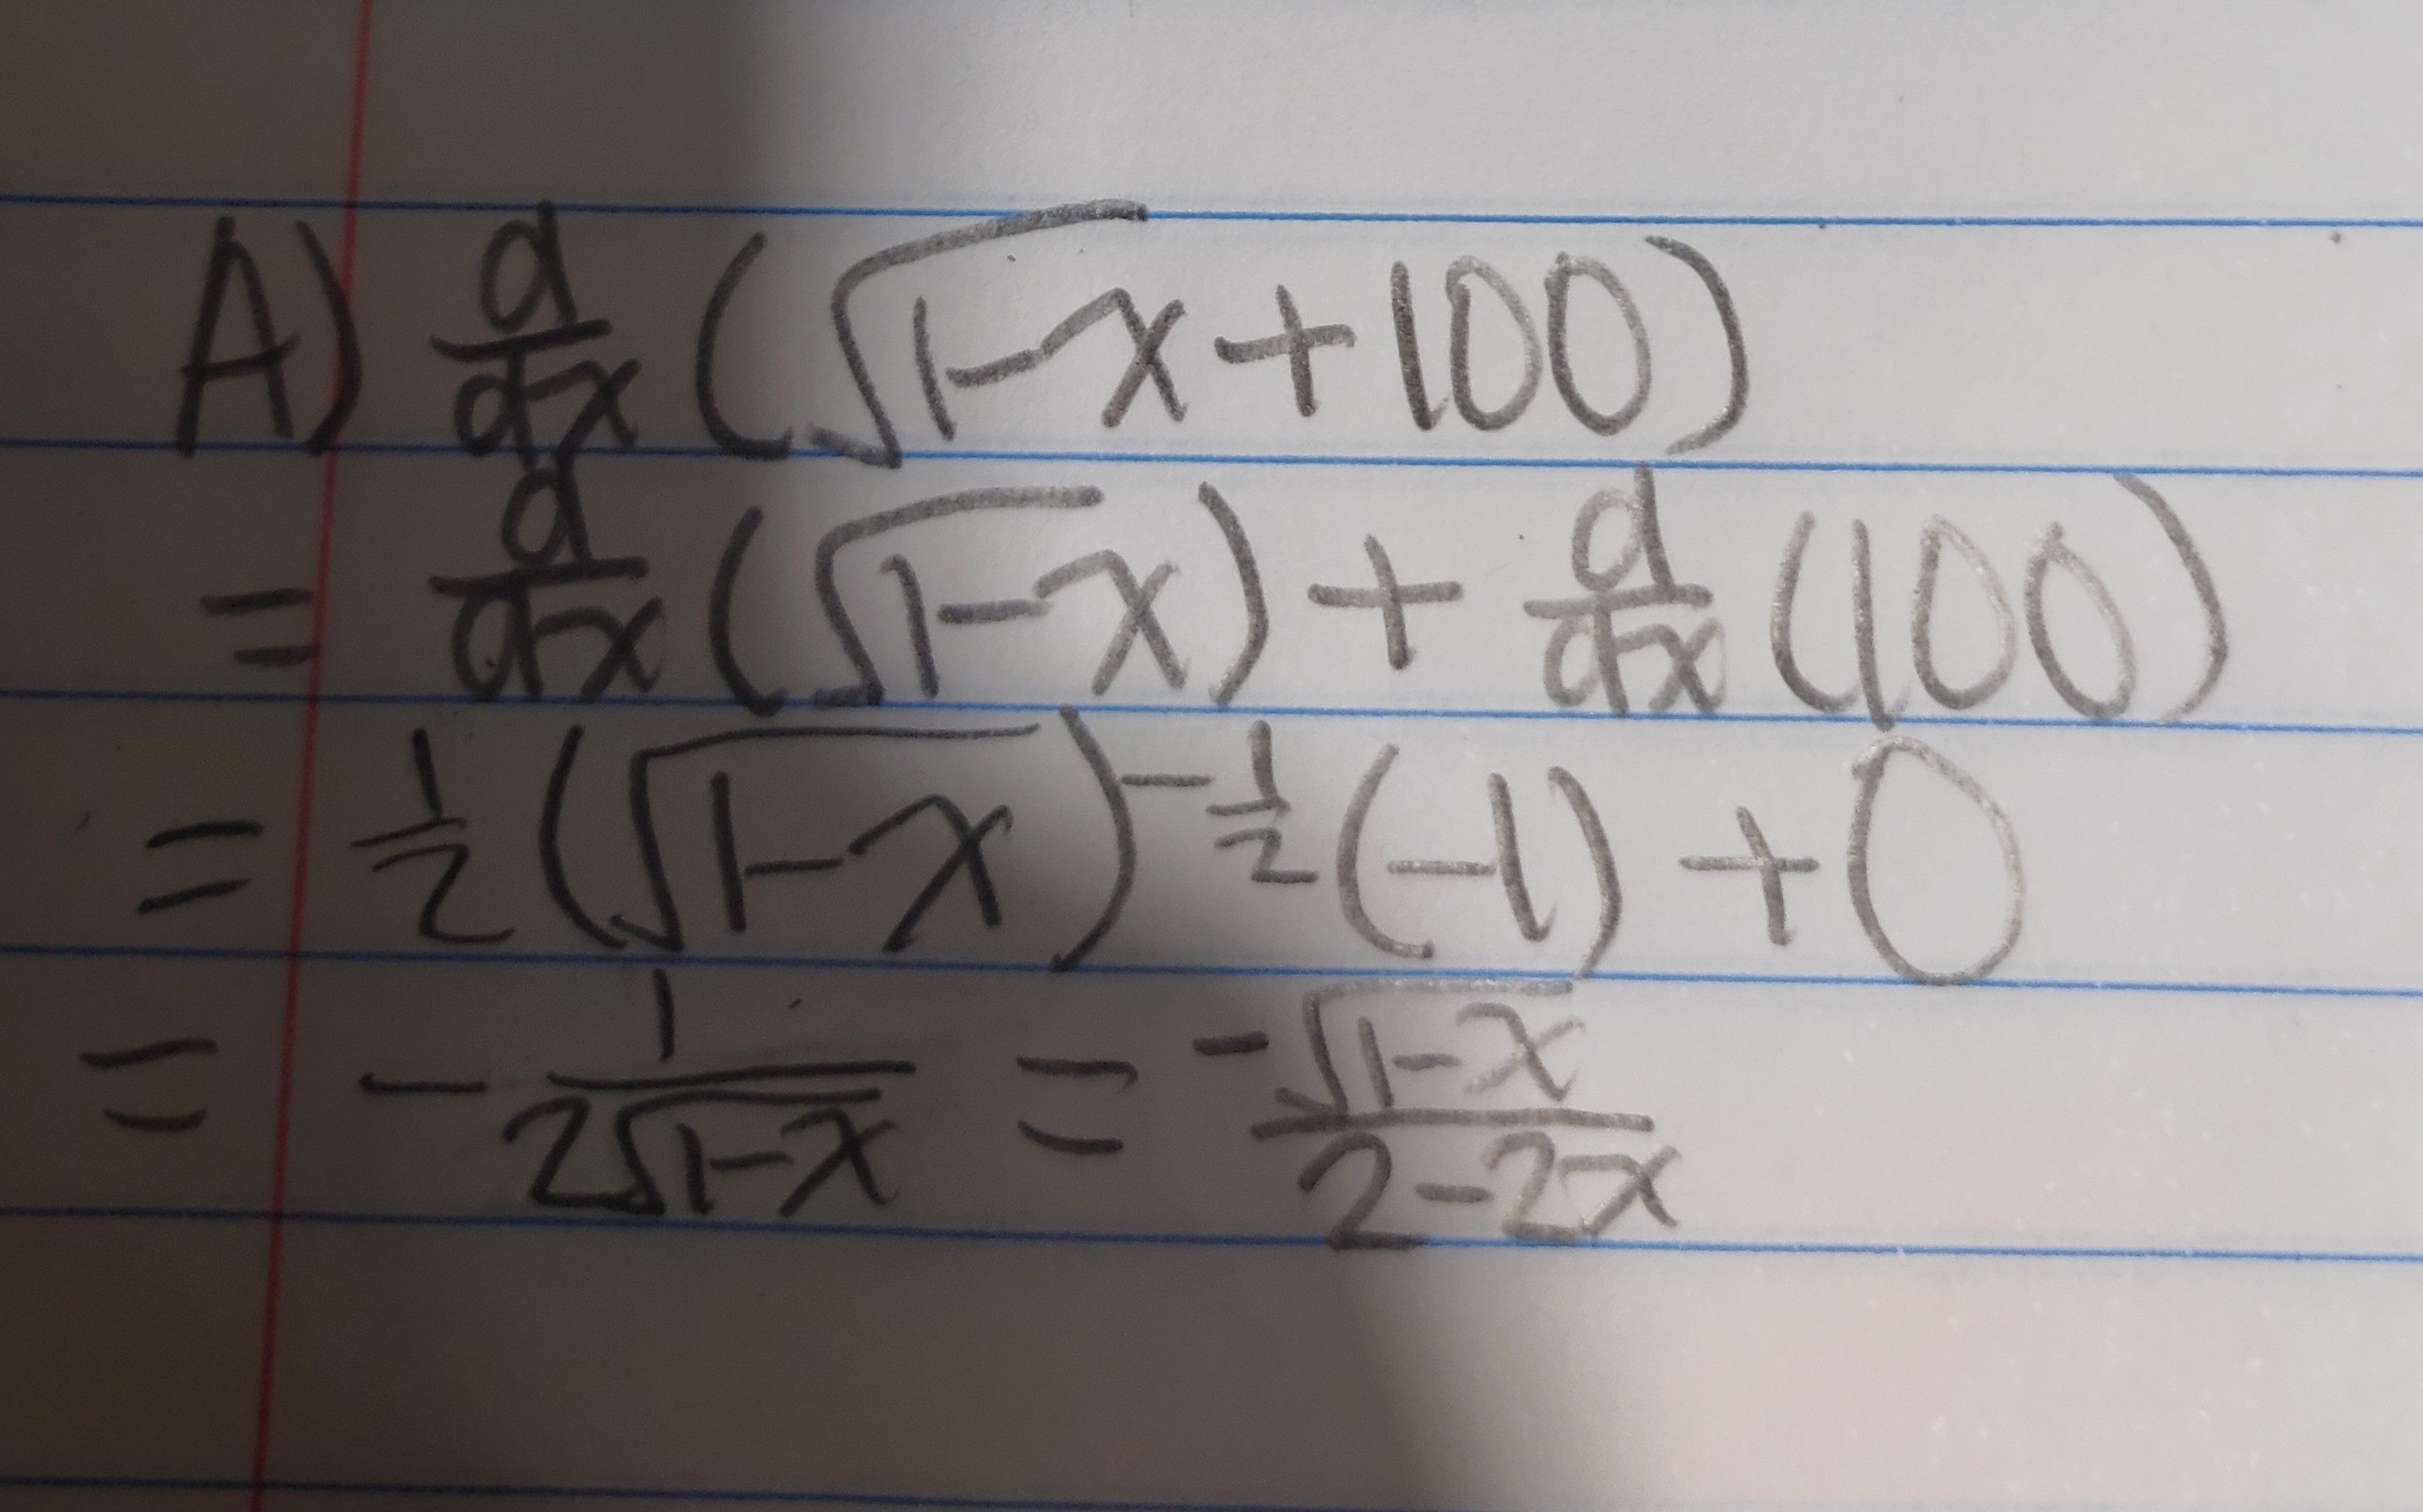 A) d/dx (√(1-x) + 100)
= d/dx (√(1-x)) + d/dx (100)
= 1/2 (√(1-x))^(-1/2) (-1) + 0
= - 1/(2√(1-x)) = -√(1-x)/(2-2x)